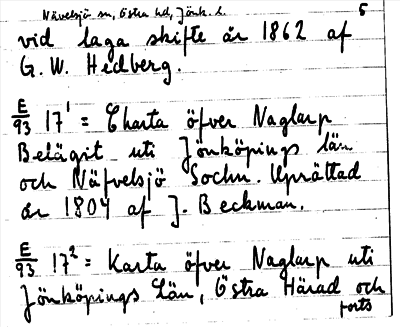 Nävelsjö sn, Östra hd, Jönk. l. 5
vid laga skifte år 1862 af
G. W. Hedberg.
E/93 17¹ = Charta öfver Naglarp
Belägit uti Jönköpings län
och Näfvelsjö Sochn. Uprättad
år 1804 af J. Beckman.
E/93 17² = Karta öfver Naglarp uti
Jönköpings Län, Östra Härad och
forts